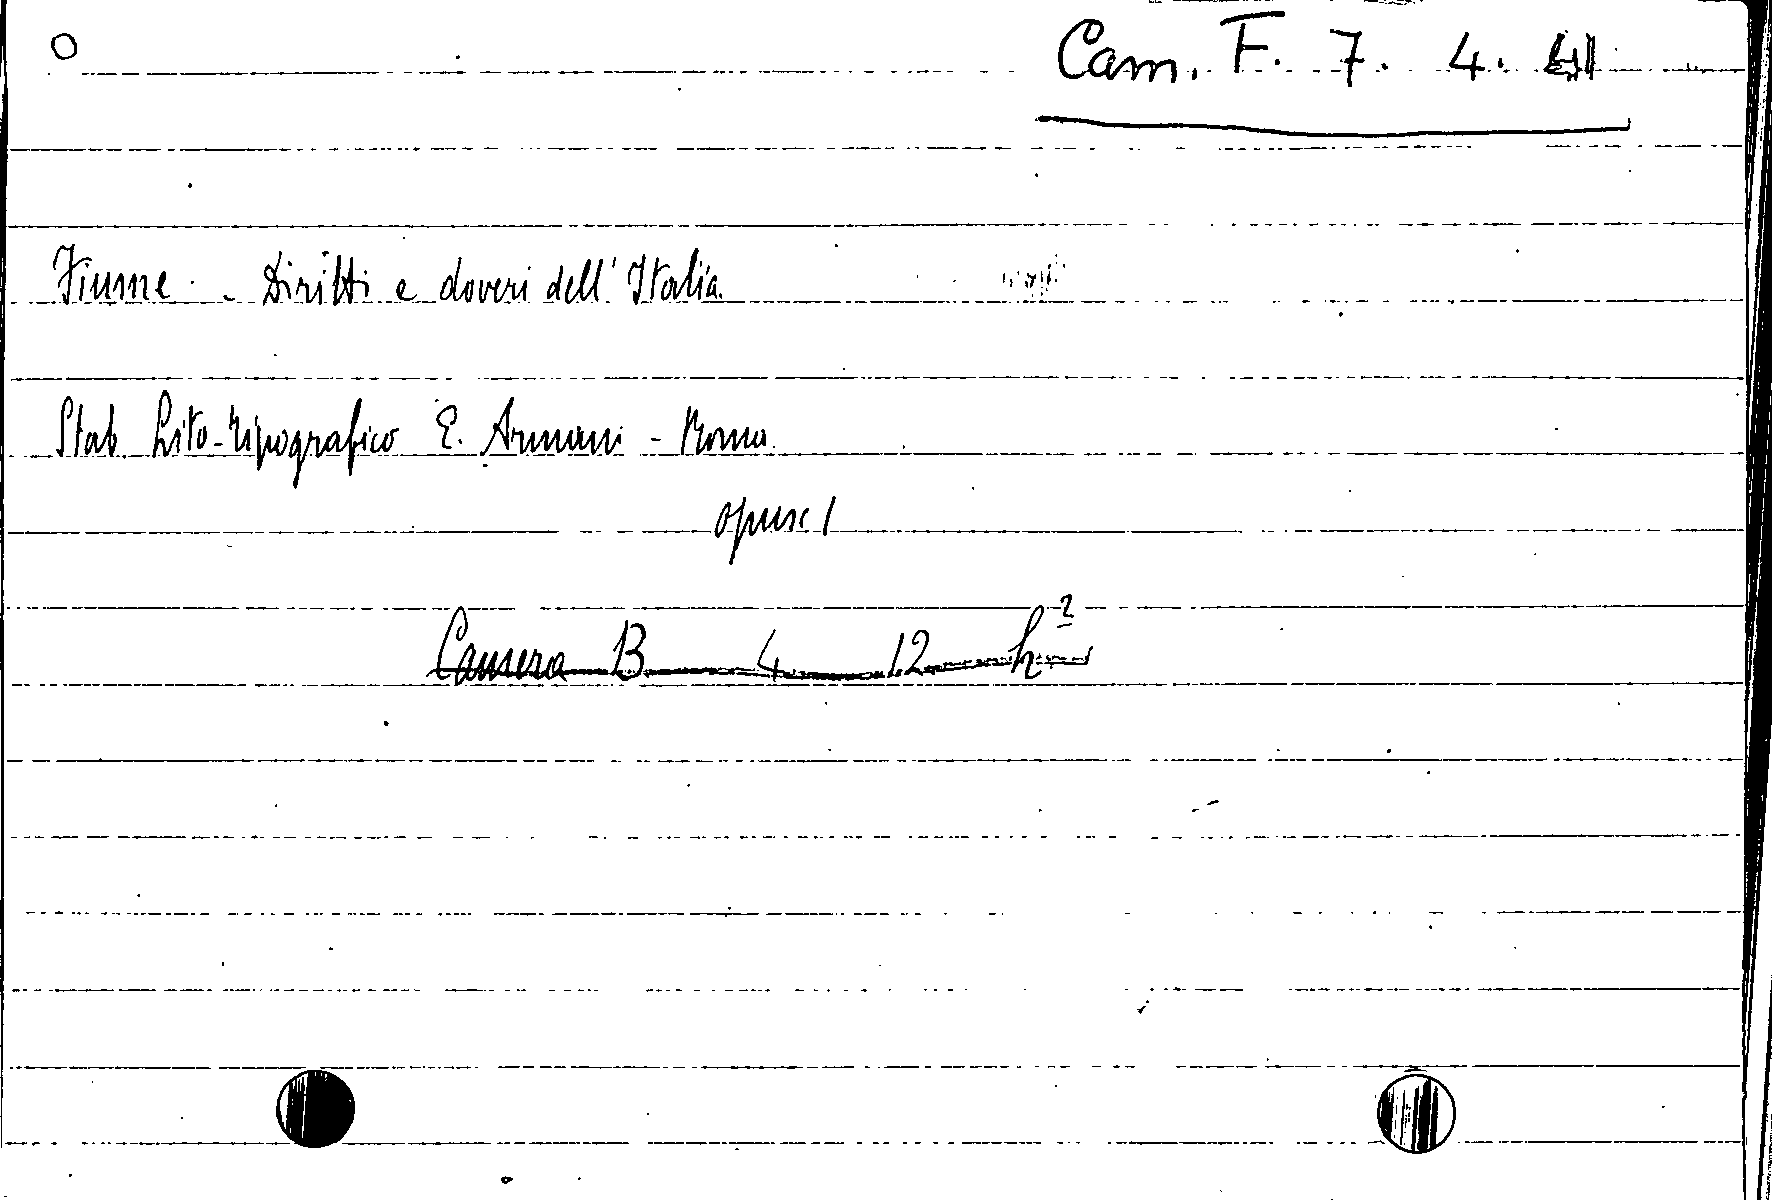 Cam. F. 7. 4.
Fiume - Diritti e doveri dell'Italia.
Stab. Lito-tipografico E. Armani - Roma.
opusc 1
Camera B 4 12 h²